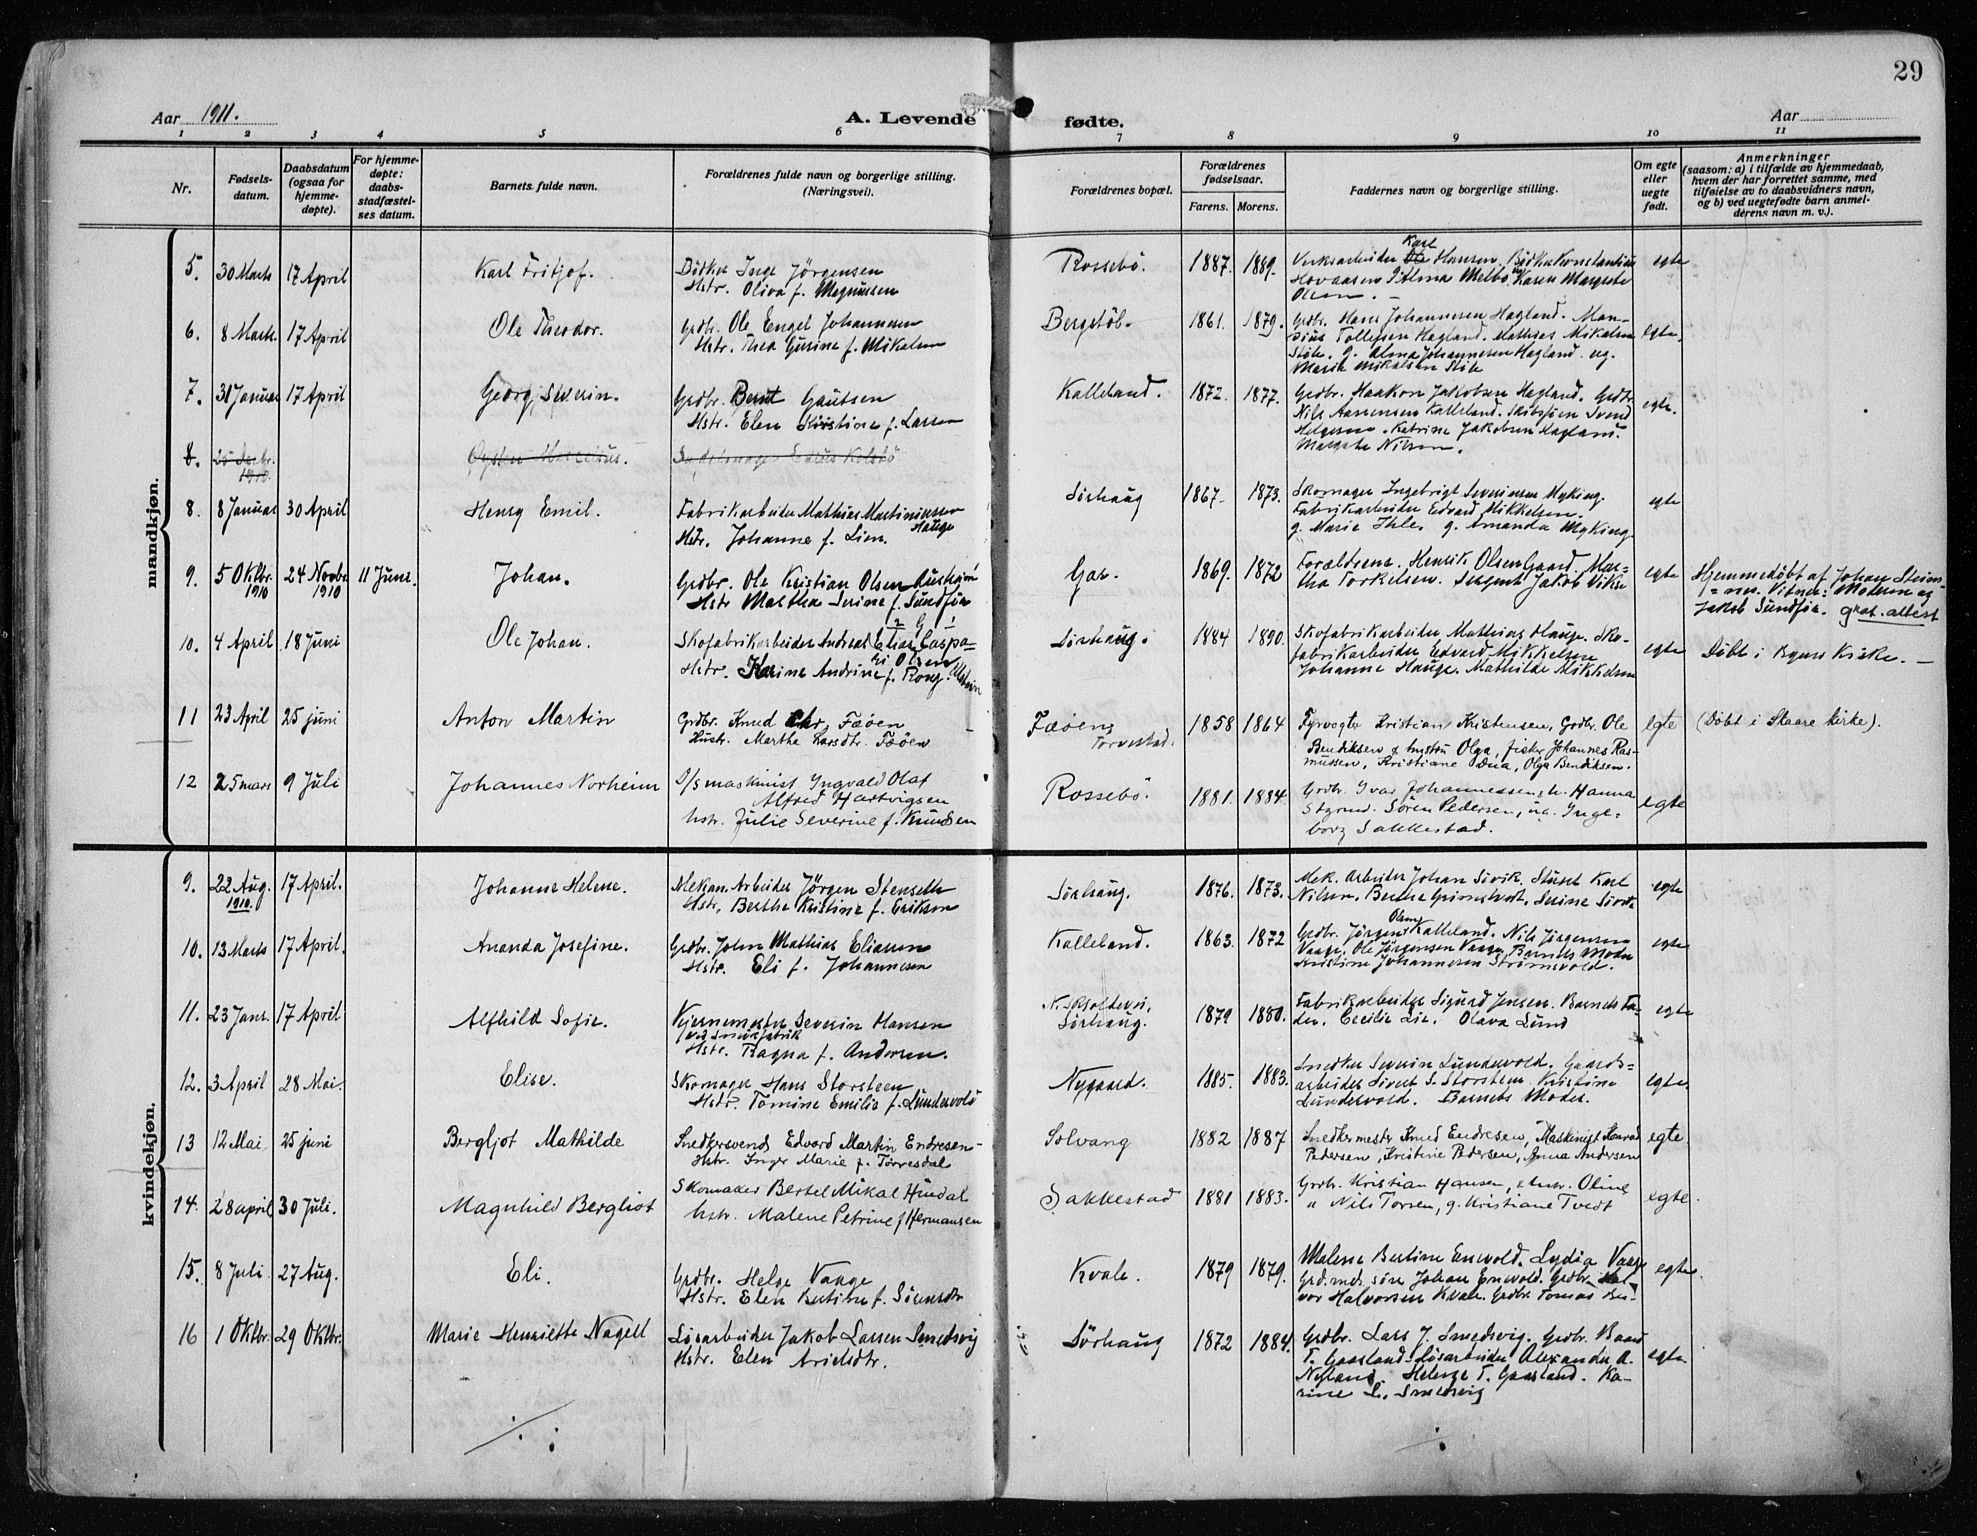 29
Aar 1911.
A. Levende fødte.
Aar
1 2 3 4 5 6 7 8 9 10 11
Nr.
Fødsels-
datum.
Daabsdatum
(ogsaa for
hjemme-
døpte).
For hjemme-
døpte:
daabs-
stadfæstel-
ses datum.
Barnets fulde navn.
Forældrenes fulde navn og borgerlige stilling.
(Næringsvei).
Forældrenes bopæl.
Forældrenes
fødselsaar.
Farens. Morens.
Faddernes navn og borgerlige stilling.
Om egte
eller
uegte
født.
Anmerkninger
(saasom: a) i tilfælde av hjemmedaab,
hvem der har forrettet samme, med
tilføielse av to daabsvidners navn,
og b) ved uegtefødte barn anmel-
derens navn m. v.).
mandkjøn.
5. 30 Marts 17 April Karl Fritjof. Bødker Inge Jörgensen
Hstr. Oliva f. Magnussen
Rossebö. 1887. 1889. Verksarbeider Karl Hansen. Bödker Konstantius
Hovaasen. Karen Margrete
Olsen. egte
6. 8 Marts 17 April Ole Theodor. Grdbr. Ole Engel Johannesen
Hstr. Thea Gurine f. Mikalsen
Bergstöl. 1861. 1879. Grdbr. Hans Johannesen Hagland. Man-
sius Tollefsen Hagland. Mathias Mikalsen
Stöle. g. Alma Johannesen Hagland. ug.
Marie Mikalsen Stöle egte.
7. 31 Januar 17 April Georg Severin. Grdbr. Bernt Gautsen
Hstr. Elen Kirstine f. Larsen
Kalleland. 1872. 1877. Grdbr. Haakon Jakobsen Hagland. Grdbr.
Nils Aanensen Kalleland. Svend
Helgesen. Katrine Jakobsen Hagland.
Margrete Nilsen. egte.
8.
1910.
8. 8 Januar 30 April Henry Emil. Fabrikarbeider Mathias Martiniussen
Hauge
Hstr. Johanne f. Lien.
Sörhaug 1867. 1873. Skomager Ingebrigt Severinsen Myking.
Fabrikarbeider Edvard Mikkelsen.
g. Marie Ihle. g. Amanda Myking. egte
9. 5 Oktbr. 24 Novbr. 11 Juni. Johan. Grdbr. Ole Kristian Olsen
1910 1910
Hstr Martha Serine f. Sundför
Gar. 1869. 1872 Forældrene. Henrik Olsen Gaard. Mar-
tha Torkelsen. Sergent Jakob Vikse egte
Hjemmedöbt af Johan
Vitner: Moderen og
Jakob Sundför. attest
10. 4 April 18 Juni Ole Johan. Skofabrikarbeider Andreas Elias Caspa-
Olsen
Hstr. Karine Andrine f.
Sörhaug. 1884 1890. Skofabrikarbeider Mathias Hauge. Sko-
fabrikarbeider Edvard Mikkelsen
Johanne Hauge. Mathilde Mikkelsen egte Döbt i Byens Kirke. —
11 23 April 25 juni Anton Martin Grdbr. Knud Chr. Fæöen
Hustr. Martha Larsdtr. Fæöen
Fæöen,
Torvestad. 1858 1864 Fyrvogter Kristian Kristensen, Grdbr. Ole
Bendiksen & hustru Olga, fisker Johannes Ras-
mussen, Kristiane Dua, Olga Bendiksen. egte (Döbt i Skaare kirke).
12 25 mars 9 Juli Johannes Norheim D/s maskinist Ingvald Olaf
Alfred Hartvigsen
hstr. Julie Severine f. Knudsen
Rossebö. 1881. 1884. Grdbr. Ivar Johannessen, h. Hanna
Sören Pedersen, ug. Inge-
borg Sakkestad. egte
kvindekjøn.
9. 22 Aug. 17 April. Johanne Helene. Mekan. Arbeider Jörgen Stenseth
1910.
Hstr. Berthe Kristine f. Erikson
Sörhaug. 1876. 1873. Mek. Arbeider Johan Sivik. Karl
Nilsen. Berthe Serine egte
10. 13 Marts 17 April. Ananda Josefine. Grdbr. John Mathias Eliasen
Hstr. Eli f. Johannesen
Kalleland. 1863. 1872 Grdbr. Jörgen Olsen Kalleland. Nils Jörgensen
Vaage. Ole Jörgensen Vaage. Barnets Moder
Kristine Johannesen Strömsvold. egte
11. 23 Janr. 17 April Alfhild Sofie. Severin Hansen
Hstr. Ragna f. Andersen.
Sörhaug. 1879 1880. Fabrikarbeider Sigurd Jensen. Barnets Fa-
der. Cecilie Lie. Olava Lund egte
12. 3 April 28 Mai. Elise. Skomager Hans Storsteen
Hstr. Tomine Emilie f. Lundevold
Nygaard. 1885. 1883. Snedker Severin Lundevold. Gaards-
arbeider Sivert S. Storsteen Kristine
Lundevold. Barnets Moder. egte
13 12 Mai 25 juni Bergljot Mathilde Snedkersvend Edvard Martin Endresen
Hstr. Inger Marie f. Torvesdal
Solvang 1882 1887 Snedkermester Knud Endresen, Maskinist Konrad
Pedersen, Kristine Pedersen, Anna Andersen egte
14. 28 april 30 Juli. Magnhild Bergliot Skomaker Bertel Mikal Hindal
hstr. Malene Petrine f. Hermansen
Sakkestad 1881 1883. Grdbr. Kristian Hansen, & hstr. Oline
" Nils Torsen, g. Kristiane Tvedt egte.
15. 8 Juli 27 Aug. Eli. Grdbr. Helge Vaage
Hstr. Elen Bertine f. Sörensdtr
Kvale. 1879 1879. Malene Bertine Enevold. Lydia Vaage
Grdmd. sön Johan Enevold. Grdbr. Hal-
vor Halvorsen Kvale. Grdbr. Tomas egte.
16 1 Oktbr. 29 Oktbr. Marie Henriette Nagell Lösarbeider Jakob Larsen Smedsvig
Hstr. Elen Arildsdtr.
Sörhaug 1872 1884. Grdbr. Lars J. Smedsvig. Grdbr. Baard
T. Gaasland. Lösarbeider Alexander A.
Nyland. Helene T. Gaasland. Ka-
rine L. Smedsvig egte.